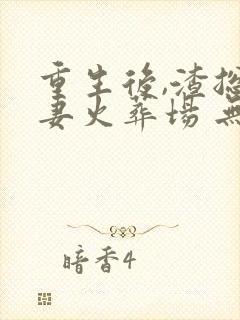 重生後,渣
妻火葬場 無
暗香4